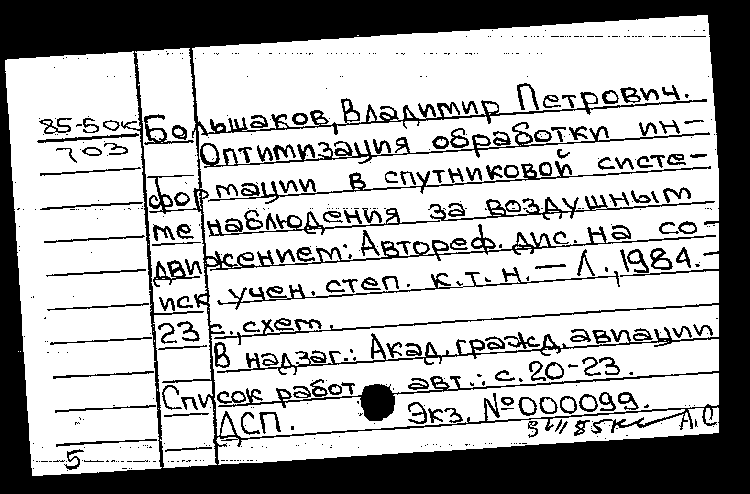 85-5ок
703
Большаков, Владимир Петрович.
Оптимизация обработки ин-
формации в спутниковой систе-
ме наблюдения за воздушным
движением: Автореф. дис. на со-
иск. учен. степ. к.т.н. — Л., 1984. -
23 с., схем.
В надзаг.: Акад. гражд. авиации
Список работ авт.: с. 20-23.
ДСП. Экз. № 000099.
А.С
5